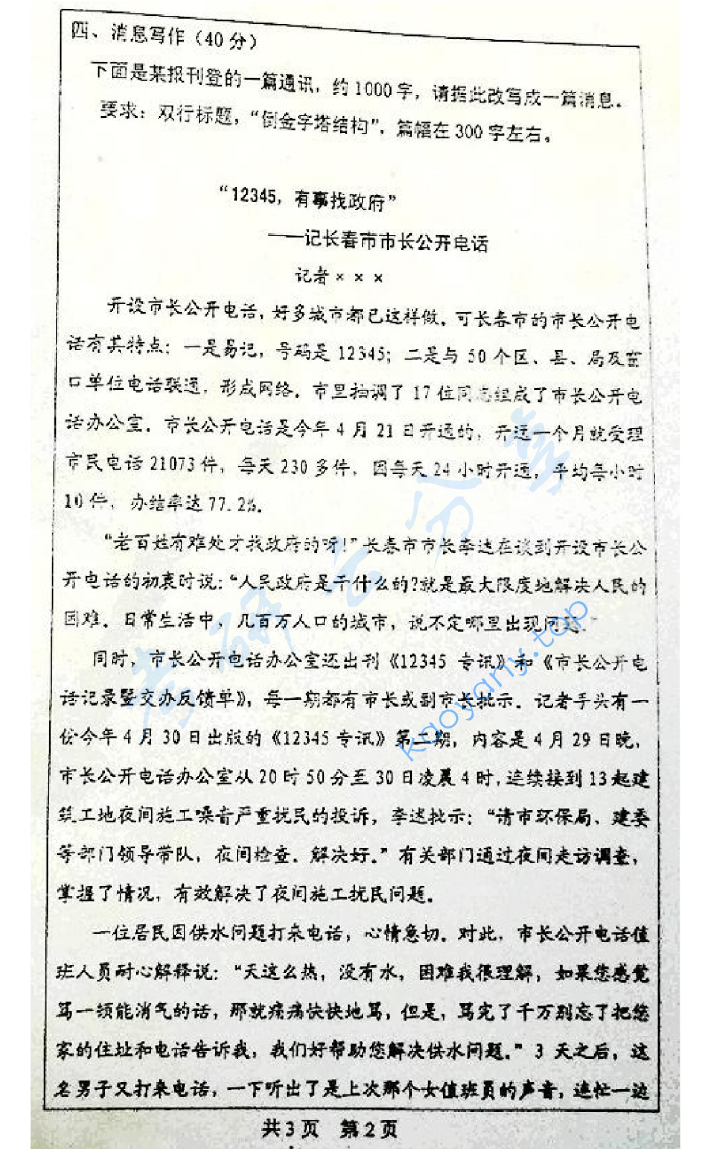 四、消息写作（40分）
下面是某报刊登的一篇通讯，约1000字，请据此改写成一篇消息。
要求：双行标题，“倒金字塔结构”，篇幅在300字左右。
“12345，有事找政府”
——记长春市市长公开电话
记者×××
开设市长公开电话，好多城市都已这样做，可长春市的市长公开电
话有其特点：一是易记，号码是12345；二是与50个区、县、局及窗
口单位电话联通，形成网络。市里抽调了17位同志组成了市长公开电
话办公室。市长公开电话是今年4月21日开通的，开通一个月就受理
市民电话21073件，每天230多件，因每天24小时开通，平均每小时
10件，办结率达77.2%。
“老百姓有难处才找政府的呀！”长春市市长李述在谈到开设市长公
开电话的初衷时说：“人民政府是干什么的？就是最大限度地解决人民的
困难。日常生活中，几百万人口的城市，说不定哪里出现问题。”
同时，市长公开电话办公室还出刊《12345 专讯》和《市长公开电
话记录暨交办反馈单》，每一期都有市长或副市长批示。记者手头有一
份今年4月30日出版的《12345专讯》第二期，内容是4月29日晚，
市长公开电话办公室从20时50分至30日凌晨4时，连续接到13起建
筑工地夜间施工噪音严重扰民的投诉，李述批示：“请市环保局、建委
等部门领导带队，夜间检查。解决好。”有关部门通过夜间走访调查，
掌握了情况，有效解决了夜间施工扰民问题。
一位居民因供水问题打来电话，心情急切。对此，市长公开电话值
班人员耐心解释说：“天这么热，没有水，困难我很理解，如果您感觉
骂一顿能消气的话，那就痛痛快快地骂，但是，骂完了千万别忘了把您
家的住址和电话告诉我，我们好帮助您解决供水问题。”3天之后，这
名男子又打来电话，一下听出了是上次那个女值班员的声音，连忙一边
共3页 第2页
考研云分享
kaoyany.top